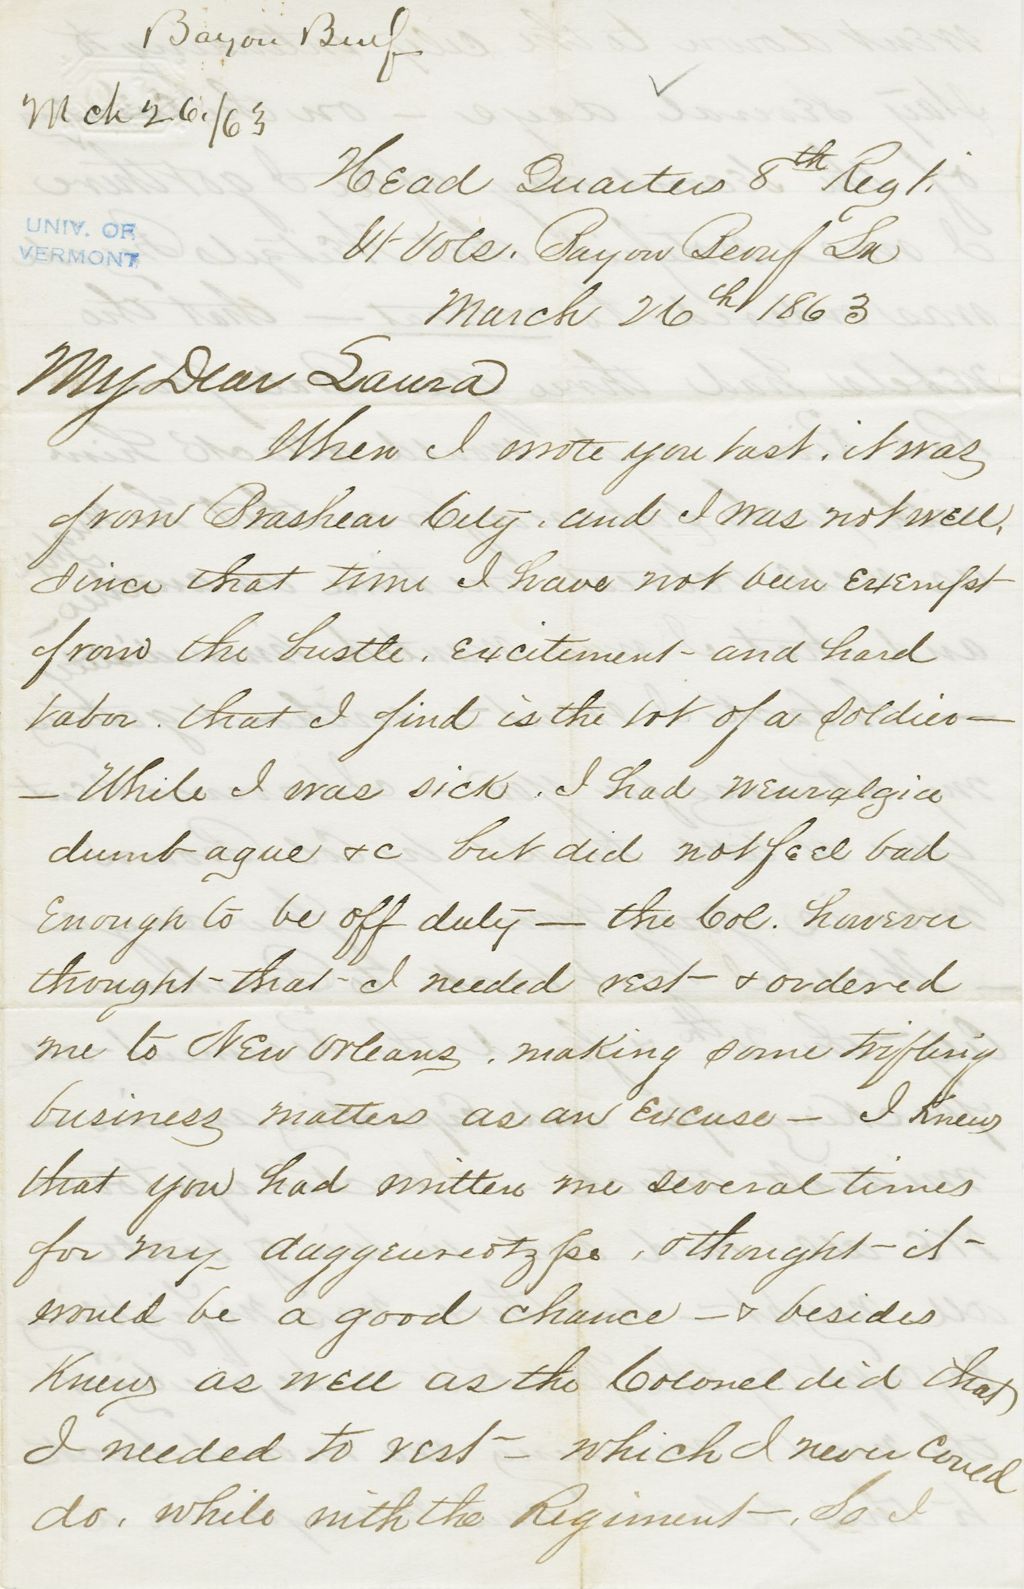 Bayou Beuf
Mch 26./63
Head Quarters 8th Regt.
Vt Vols. Bayou Beouf La
UNIV. OF
VERMONT
March 26th 1863
My Dear Laura
When I wrote you last, it was
from Brashear City, and I was not well.
Since that time I have not been exempt
from the bustle, excitement and hard
labor. that I find is the lot of a soldier —
— While I was sick, I had neuralgia
dumb ague &c but did not feel bad
enough to be off duty — the Col. however
thought that I needed rest & ordered
me to New Orleans, making some trifling
business matters as an excuse — I knew
that you had written me several times
for my daggeureotype, & thought it
would be a good chance — & besides
knew as well as the Colonel did that
I needed to rest — which I never could
do, while with the Regiment —, So I